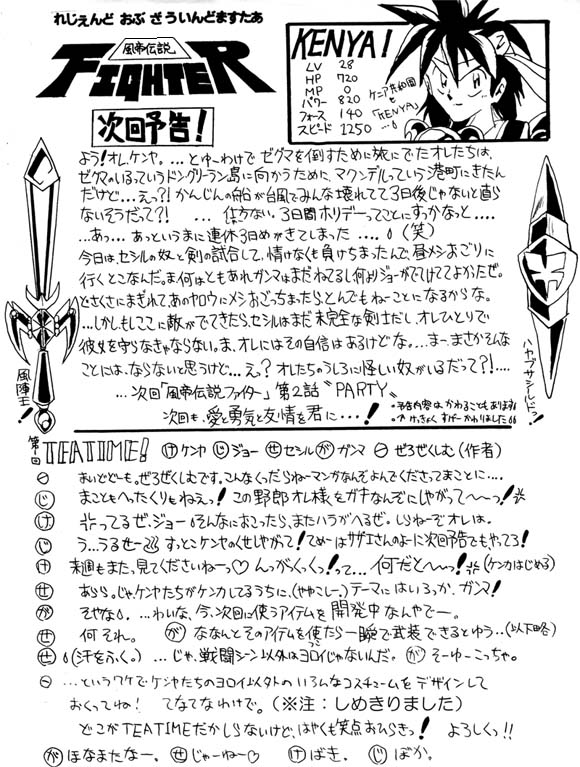 れじぇんど おぶ ざ うぃんどますたあ
風帝伝説
FIGHTER
次回予告!
KENYA!
LV 28
HP 720
MP 0
パワー 820
フォース 140
スピード 1250
ケニア共和国
も
「KENYA」
…も
よう!オレ、ケンヤ。…とゆーわけで ゼグマを倒すために旅にでたオレたちは、
ゼグマのいるっていうドングリーラン島に向かうために、マクンデルっていう港町にきたん
だけど…えっ?!かんじんの船が台風でみんな壊れてて3日後じゃないと直ら
ないそうだって?! …仕方ない。3日間ホリデーってことにすっかなっと‥‥
…あっ…あっというまに連休3日めがきてしまった ‥‥。(笑)
今日は、セシルの奴と剣の試合して、情けなくも負けちまったんで、昼メシおごりに
行くとこなんだ。ま、何はともあれガンマはまだねてるし何よりジョーがでかけててよかったぜ。
どさくさにまぎれて、あのヤロウにメシおごっちまったらとんでもねーことになるからな。
…しかしもしここに敵がでてきたら、セシルはまだ未完全な剣士だし、オレひとりで
彼女を守らなきゃならない。ま、オレにはその自信はあるけどな。…まー、まさかそんな
ことには、ならないと思うけど…えっ?オレたちのうしろに怪しい奴がいるだって?!‥‥
…次回「風帝伝説ファイター」第2話 "PARTY"
次回も、愛と勇気と友情を君に…!
・予告内容は、かわることもあります
けっきょく すげーかわりました
風陣王!
ハヤブサシールドっ!
第1回 TEATIME! けケンヤ じジョー せセシル がガンマ ㊀ぜろぜくしむ(作者)
㊀ まいどどーも。ぜろぜくしむです。こんなくだらねーマンガなんぞよんでくださってまことに‥‥
じ まこともへったくりもねぇっ!この野郎オレ様をガキなんぞにしやがって〜〜っ!
け 怒ってるぜ、ジョー。そんなにおこったら、またハラがへるぜ。しらねーぞオレは。
じ う…うるせー すっとこケンヤのくせしやがって!てめーはサザエさんのよーに次回予告でも、やってろ!
け 来週もまたっ、見てくださいねーっ♡ んっがくっくっ!って…何だと〜っ!(ケンカはじめる)
せ あらら。じゃケンヤたちがケンカしてるうちに、(ややこしー。)テーマにはいろっか、ガンマ!
が そやな。…わいな、今、次回に使うアイテムを開発中なんやでー。
せ 何それ。 が ななんとそのアイテムを使たら一瞬で武装できるとゆう‥(以下略)
せ (汗をふく。)…じゃ、戦闘シーン以外はヨロイじゃないんだ。 が そーゆーこっちゃ。
㊀ …というワケでケンヤたちのヨロイ以外のいろんなコスチュームをデザインして
おくってね! てなてなわけで。(※注:しめきりました)
どこがTEATIMEだかしらないけど、はやくも笑点おひらきっ! よろしくっ!!
が ほなまたなー。 せ じゃーねー♡ け ばき。 じ ばか。